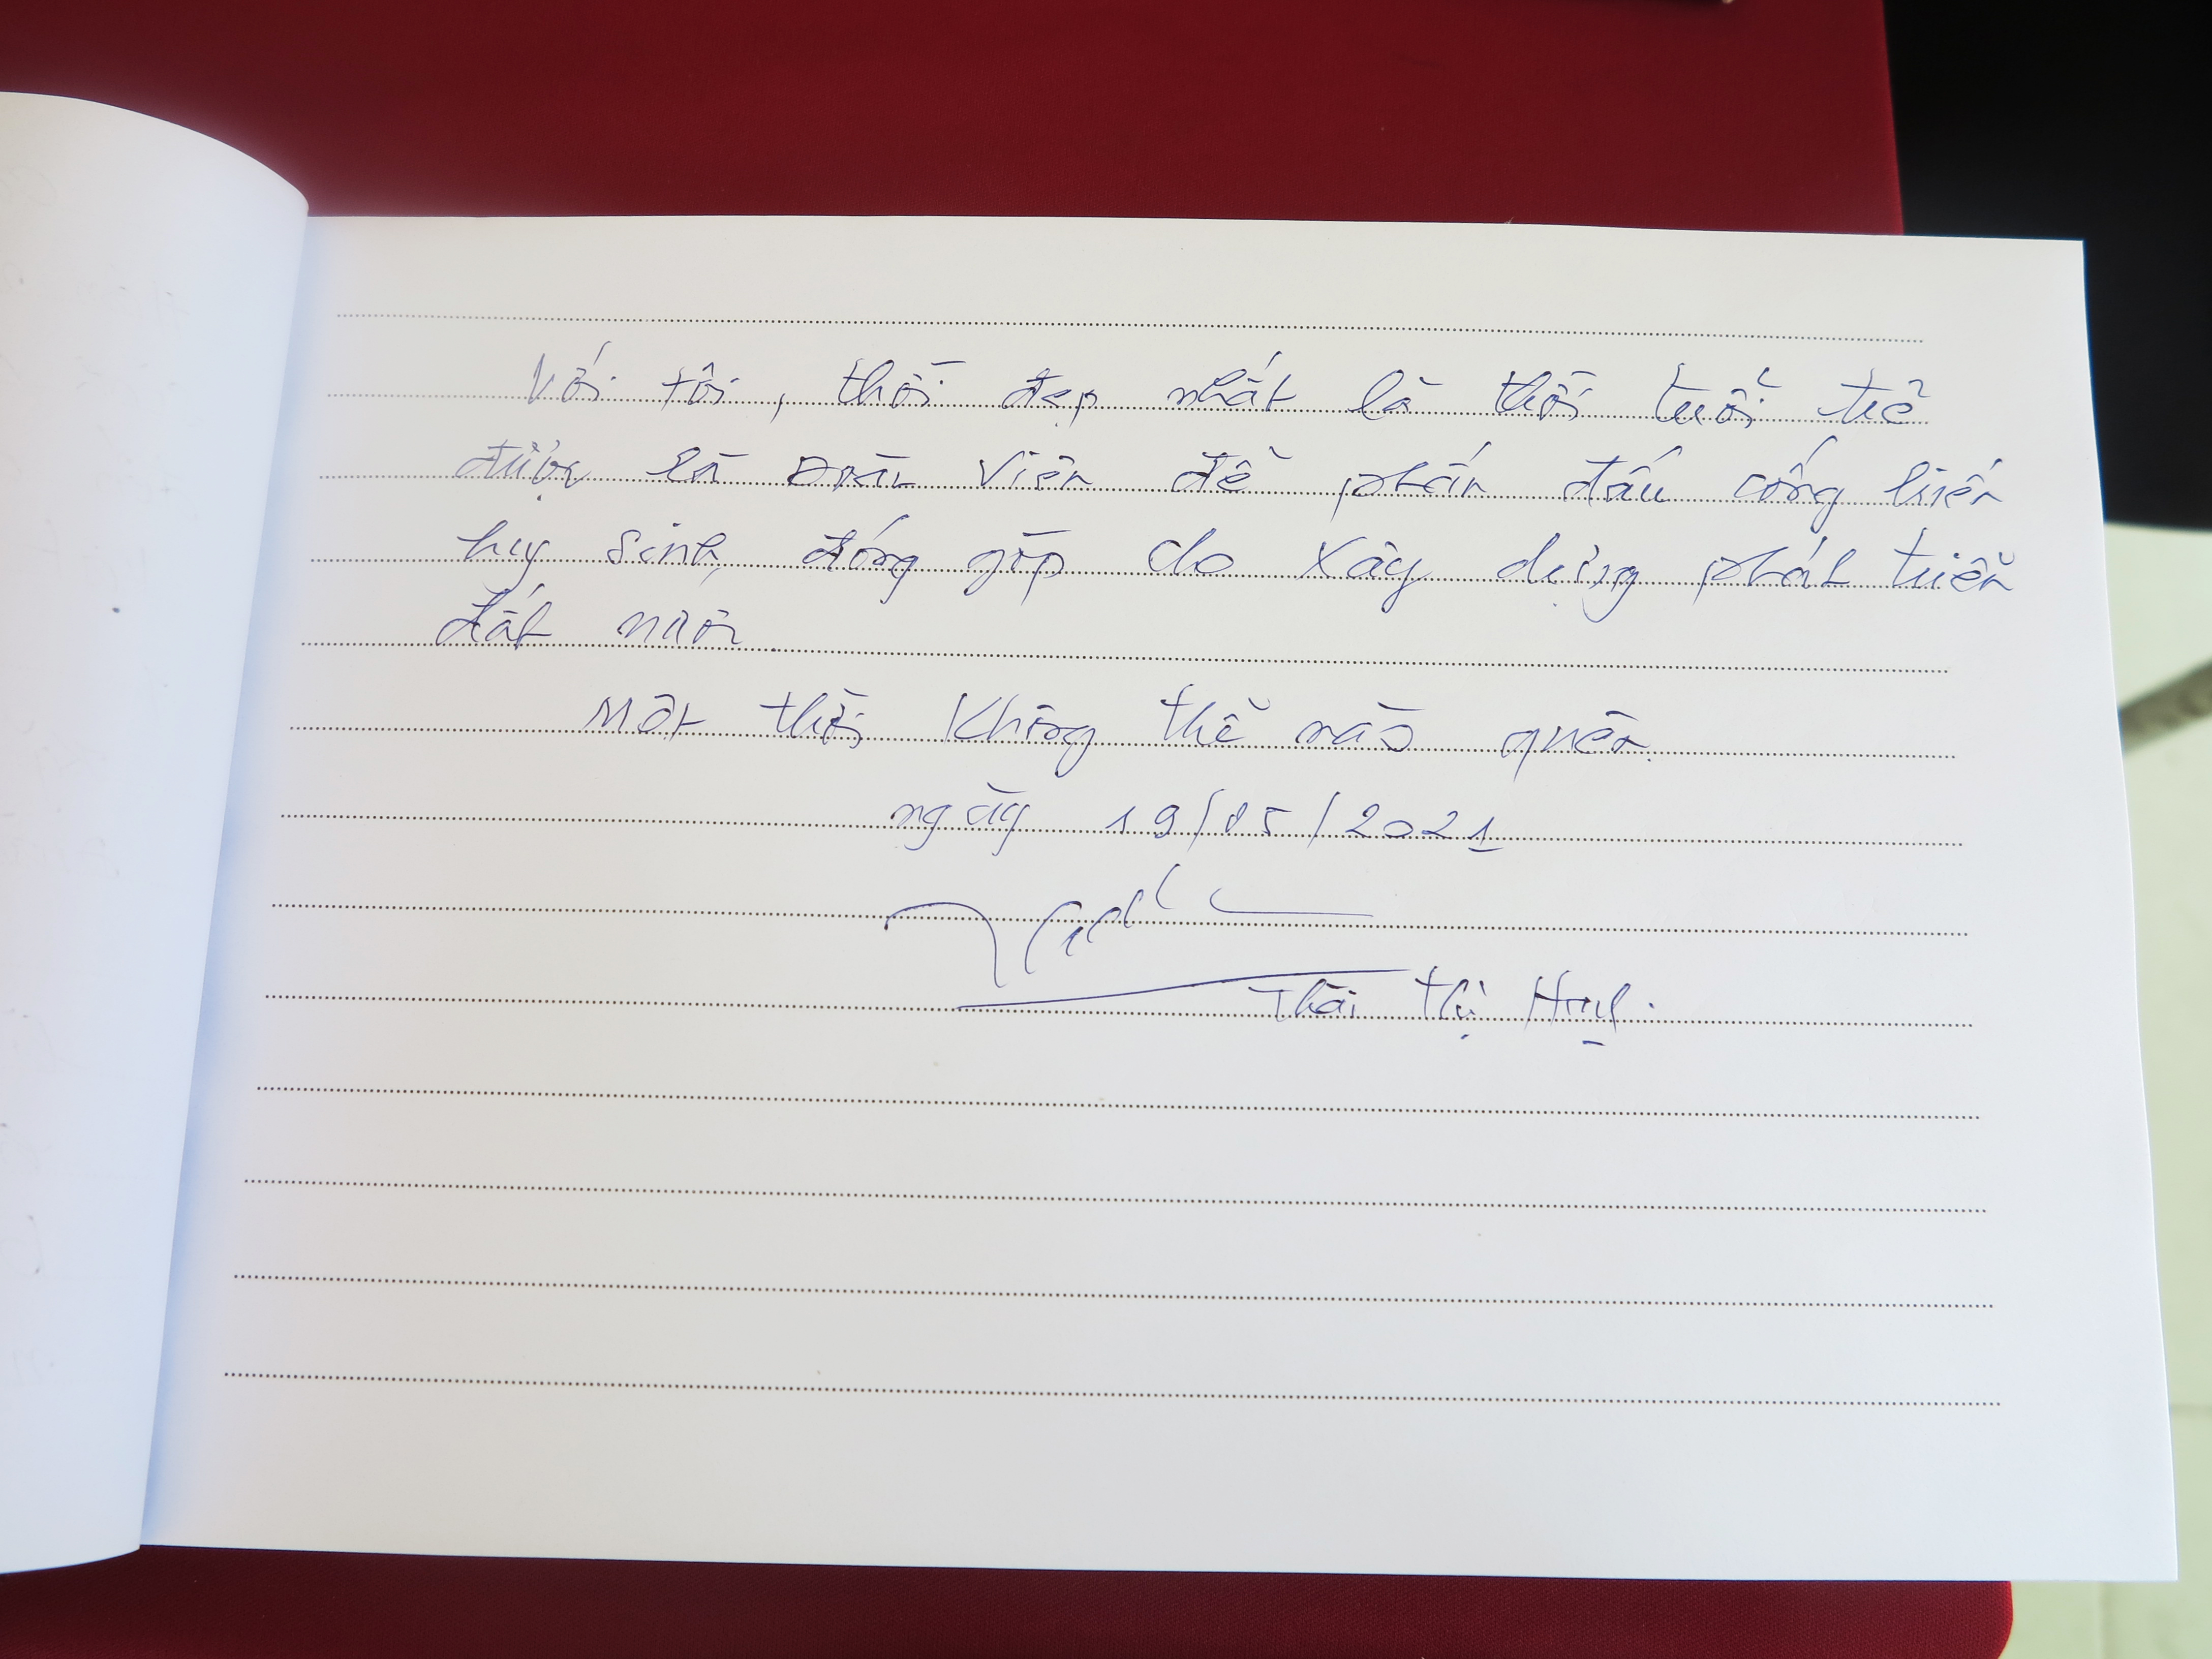 Với tôi, thời đẹp nhất là thời tuổi trẻ
được là Đoàn viên để phấn đấu cống hiến
hy sinh, đóng góp cho xây dựng phát triển
đất nước.
Một thời không thể nào quên.
ngày 19/05/2021
Thái Thị